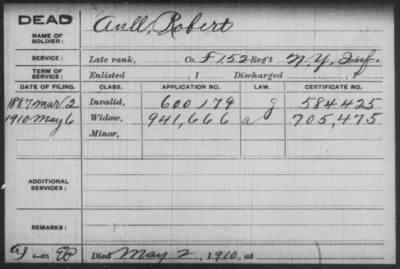 DEAD
NAME OF SOLDIER: Aull, Robert
SERVICE: Late rank, Co. F 152 Reg't N.Y. Inf.
TERM OF SERVICE: Enlisted , 1 Discharged , 1
DATE OF FILING. CLASS. APPLICATION NO. LAW. CERTIFICATE NO.
1887 Mar 12 Invalid, 600,179 g 584425
1910 May 6 Widow, 941,666 a 705,475
Minor,
ADDITIONAL SERVICES:
REMARKS:
Died May 2, 1910, at